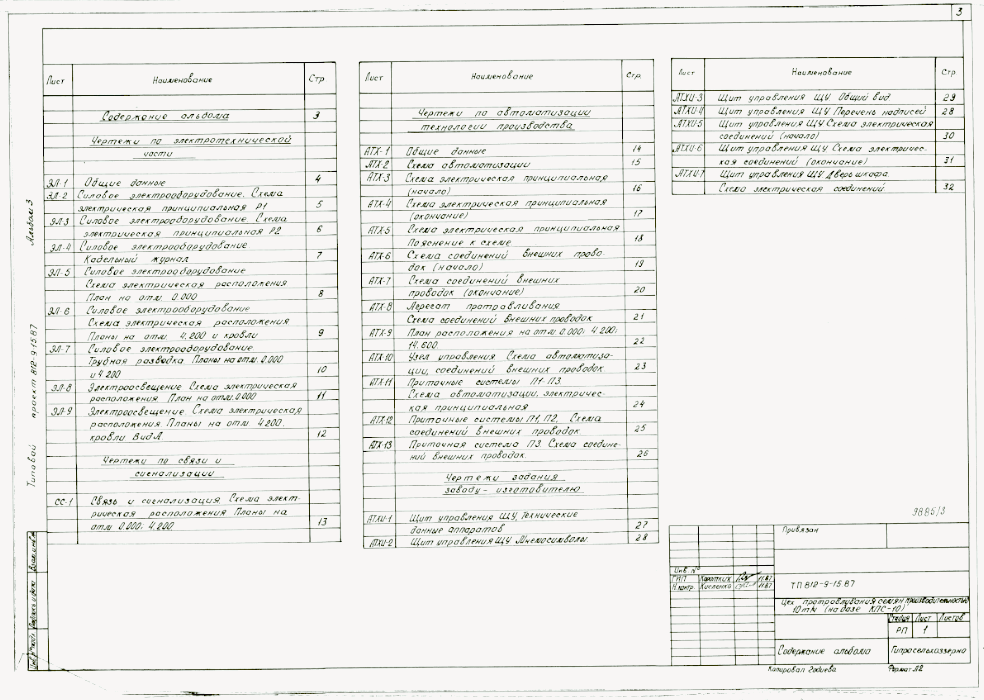 3
Лист Наименование Стр
Содержание альбома 3
Чертежи по электротехнической
части
ЭЛ-1 Общие данные 4
ЭЛ-2 Силовое электрооборудование. Схема
электрическая принципиальная Р1 5
ЭЛ-3 Силовое электрооборудование. Схема
электрическая принципиальная Р2 6
ЭЛ-4 Силовое электрооборудование
Кабельный журнал 7
ЭЛ-5 Силовое электрооборудование
Схема электрическая расположения
План на отм. 0.000 8
ЭЛ-6 Силовое электрооборудование
Схема электрическая расположения
Планы на отм 4.200 и кровли 9
ЭЛ-7 Силовое электрооборудование
Трубная разводка Планы на отм. 0.000
и 4.200 10
ЭЛ-8 Электроосвещение Схема электрическая
расположения План на отм.0.000 11
ЭЛ-9 Электроосвещение Схема электрическая
расположения. Планы на отм 4.200.
кровли Вид А 12
Чертежи по связи и
сигнализации
СС-1 Связь и сигнализация. Схема элект-
рическая расположения Планы на
отм 0.000; 4.200 13
Лист Наименование Стр.
Чертежи по автоматизации
технологии производства
АТХ-1 Общие данные 14
АТХ-2 Схема автоматизации 15
АТХ-3 Схема электрическая принципиальная
(начало) 16
АТХ-4 Схема электрическая принципиальная
(окончание) 17
АТХ-5 Схема электрическая принципиальная
Пояснение к схеме 18
АТХ-6 Схема соединений внешних прово-
док (начало) 19
АТХ-7 Схема соединений внешних
проводок (окончание) 20
АТХ-8 Агрегат протравливания
Схема соединений внешних проводок 21
АТХ-9 План расположения на отм. 0.000; 4.200;
14.600 22
АТХ-10 Узел управления Схема автоматиза-
ции, соединений внешних проводок 23
АТХ-11 Приточные системы П1-П3.
Схема автоматизации, электричес-
кая принципиальная 24
АТХ-12 Приточные системы П1, П2, Схема
соединений внешних проводок 25
АТХ-13 Приточная система П3. Схема соедине-
ний внешних проводок 26
Чертежи задания
заводу-изготовителю
АТХИ-1 Щит управления ЩУ, Технические
данные аппаратов 27
АТХИ-2 Щит управления ЩУ Мнемосимволы 28
Лист Наименование Стр
АТХИ-3 Щит управления ЩУ. Общий вид 29
АТХИ-4 Щит управления ЩУ Перечень надписей 28
АТХИ-5 Щит управления ЩУ Схема электрическая
соединений (начало) 30
АТХИ-6 Щит управления ЩУ Схема электричес-
кая соединений (окончание) 31
АТХИ-7 Щит управления ЩУ Дверь шкафа.
Схема электрическая соединений 32
Альбом 3
проект 812-9-15.87
Типовой
Взам.инв.№
Подпись и дата
Инв.№подл
9885/3
Привязан
Инв. №
ГИП Коротких 11.87
Н.контр. Кисленко 11.87
ТП.812-9-15.87
Цех протравливания семян производительностью
10т/ч (на базе КПС-10)
Стадия Лист Листов
РП 1
Содержание альбома Гипросельхоззерно
Копировал Годиева Формат А2